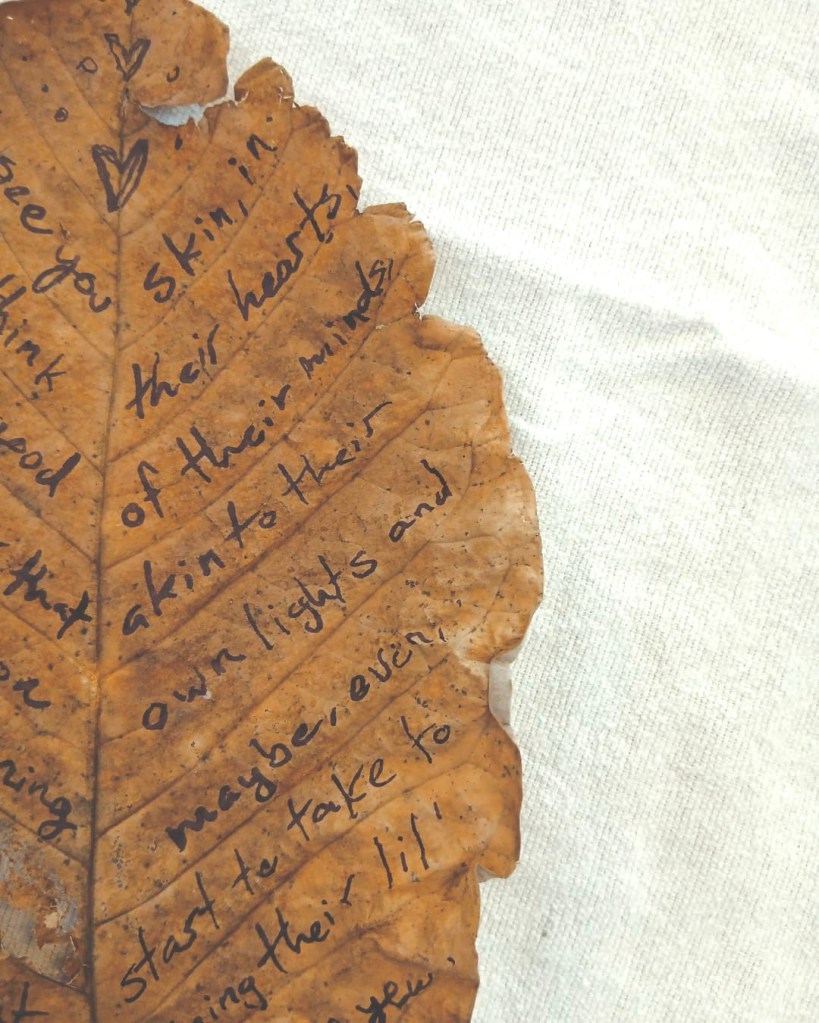 see you
think
good
that
on a
ning
skin, in
their hearts,
of their minds,
akin to their
own lights and
maybe, even,
start to take to
ning their lil'
yew.